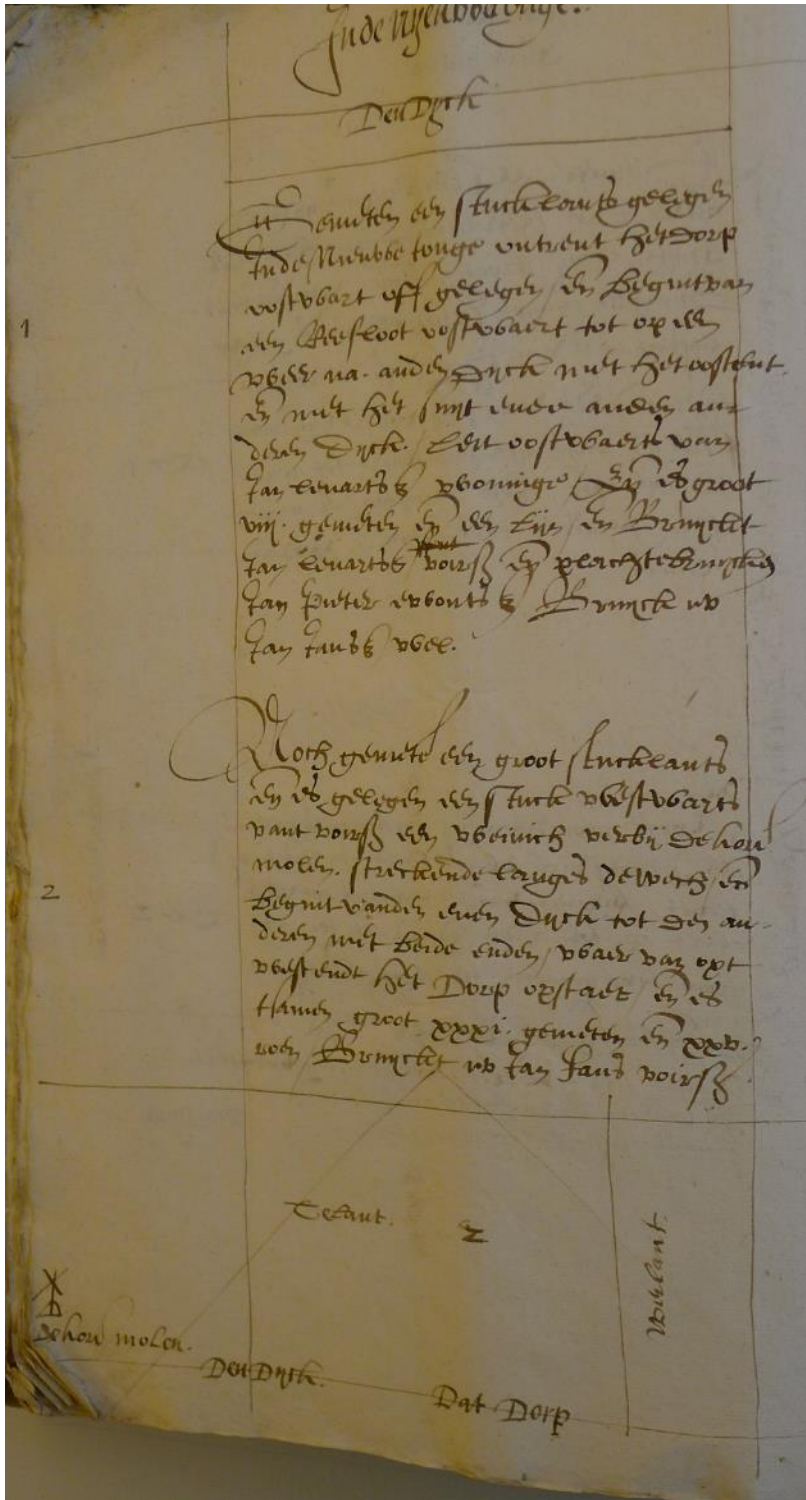 Den Dyck
Gemeten een stuck lants gelegen
Inde Nieuwe tonge ontrent het dorp
oostwart off gelegen en begint van
een Reesloot oostwaert tot op een
weer na anden Dyck met het oostent
en met het suyt ende anden an
deren Dyck. leit oostwaerts van
Jan lenarts woninge en es groot
viij. gemeten en een lyn en Bruyckt
Jan lenarts voirs en
Jan pieter Bruyck nv
Jan Jans
Noch gemete een groot stuck lants
en es gelegen een stuck westwarts
vant voirs een weinich verbij de hou
molen. streckende langes de wech en
begint vanden enen Dyck tot den an
deren met beide enden waer van opt
westendt het Dorp opstaet en es
tsamen groot xxxi. gemeten en xxv.
roen Bruyckt nv Jan Jans voirs
1
2
Telant.
2
Weilant
de hou molen.
Den Dyck.
Dat Dorp